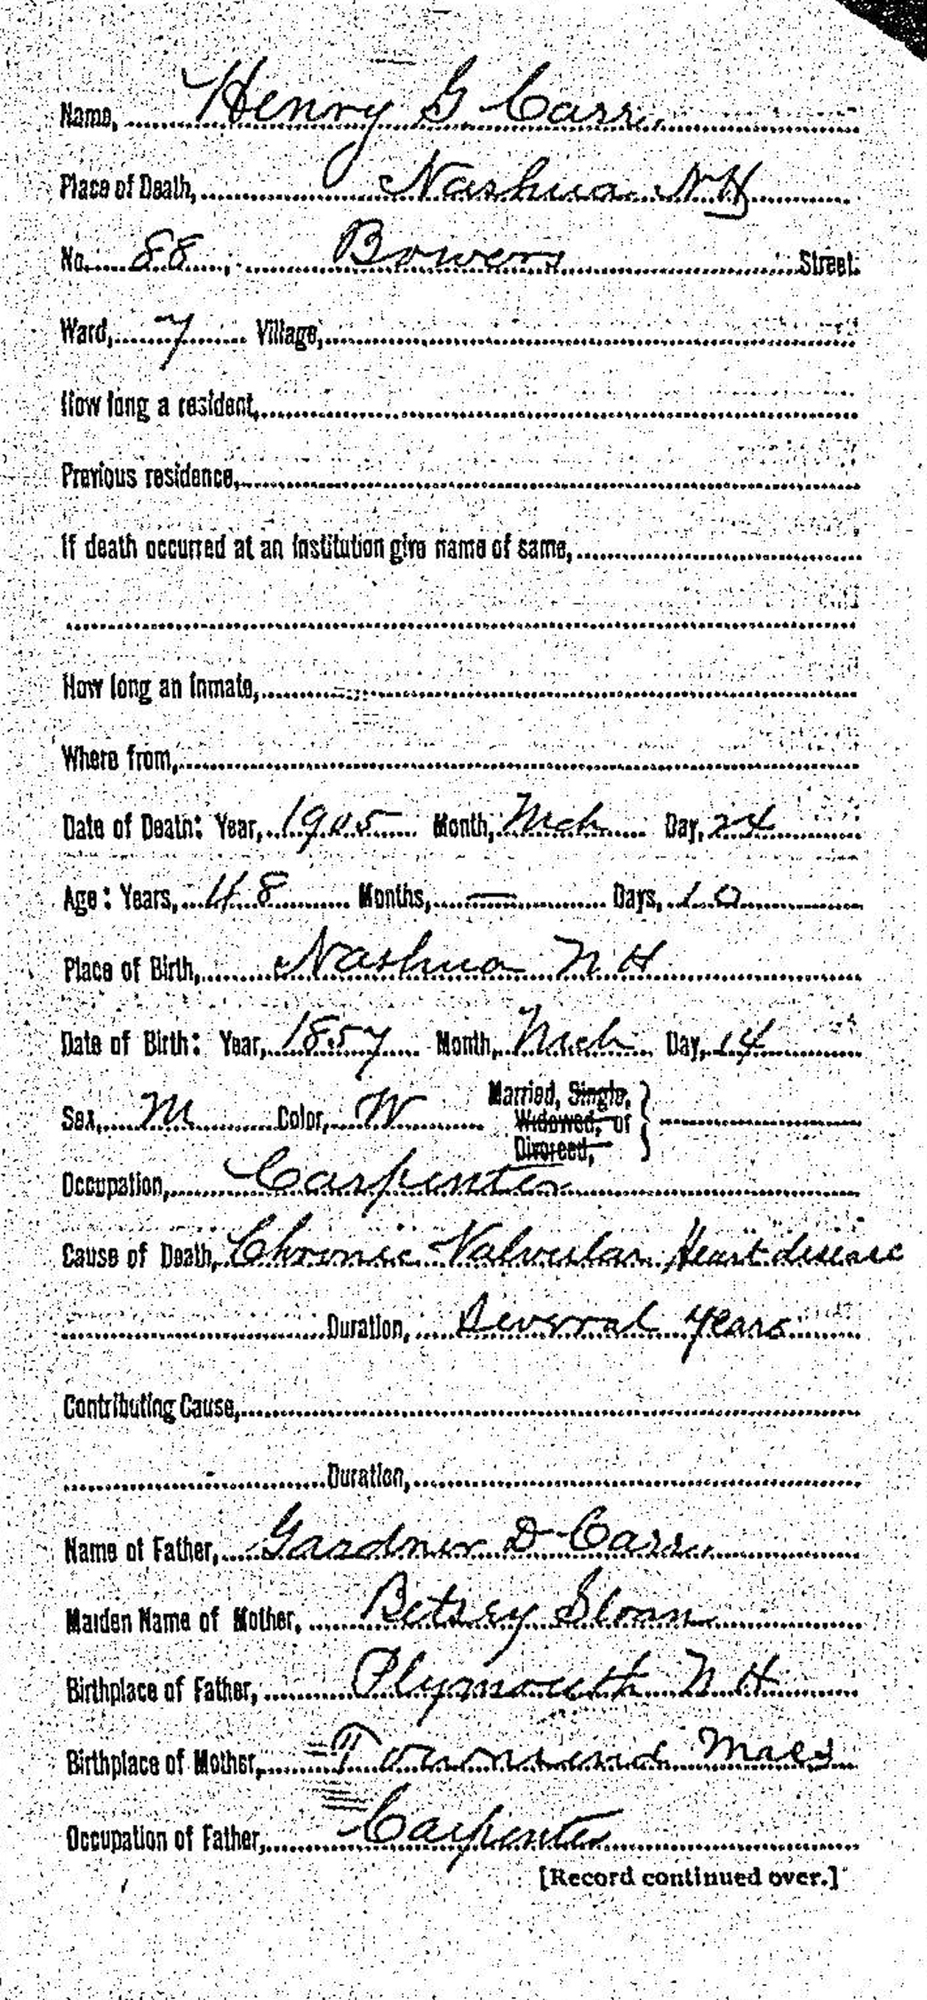 Name, Henry G. Carr
Place of Death, Nashua NH
No. 88, Bowers Street.
Ward, 7 Village,
How long a resident,
Previous residence,
If death occurred at an institution give name of same,
How long an inmate,
Where from,
Date of Death: Year, 1905 Month, Mch Day, 24
Age: Years, 48 Months, — Days, 10
Place of Birth, Nashua N H
Date of Birth: Year, 1857 Month, Mch Day, 14
Sex, M Color, W Married, Single,
Widowed, or
Divorced,
Occupation, Carpenter
Cause of Death, Chronic Valvular Heart disease
Duration, Several years
Contributing Cause,
Duration,
Name of Father, Gardner D Carr
Maiden Name of Mother, Betsey Sloan
Birthplace of Father, Plymouth N H
Birthplace of Mother, Townsend Mass
Occupation of Father, Carpenter
[Record continued over.]